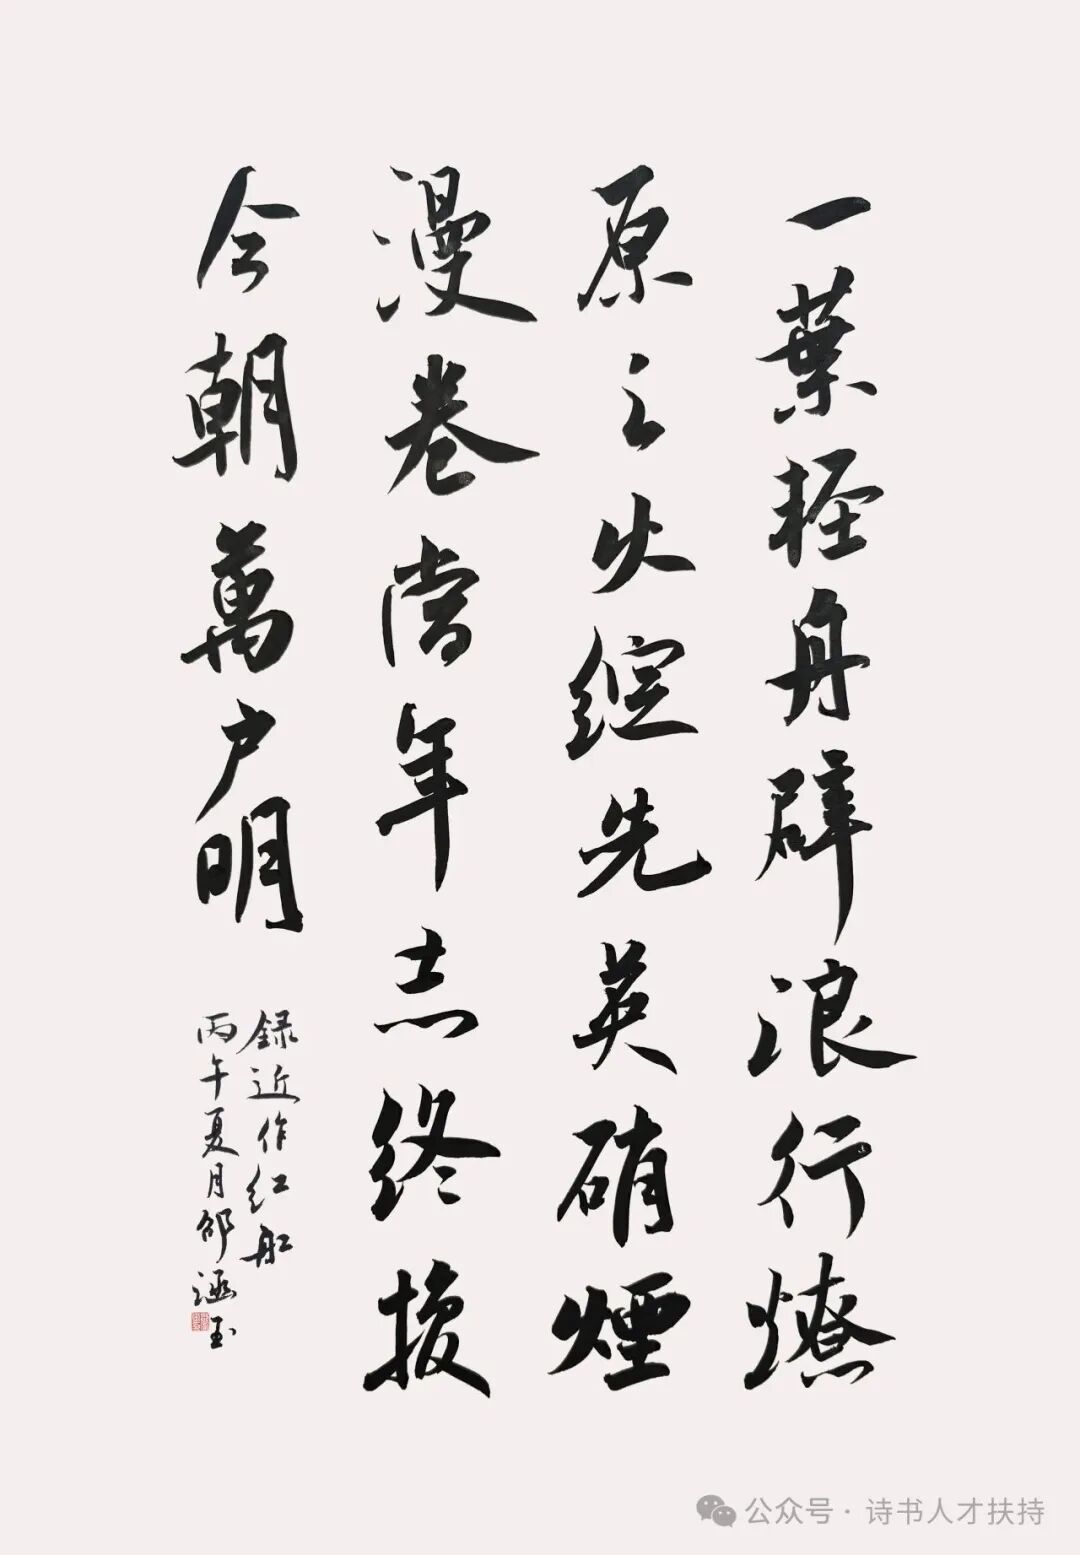 一葉輕舟辟浪行燎
原之火綻先英硝煙
漫卷當年志終換
今朝萬户明
録近作紅船
丙午夏月邵涵玉
公众号 · 诗书人才扶持